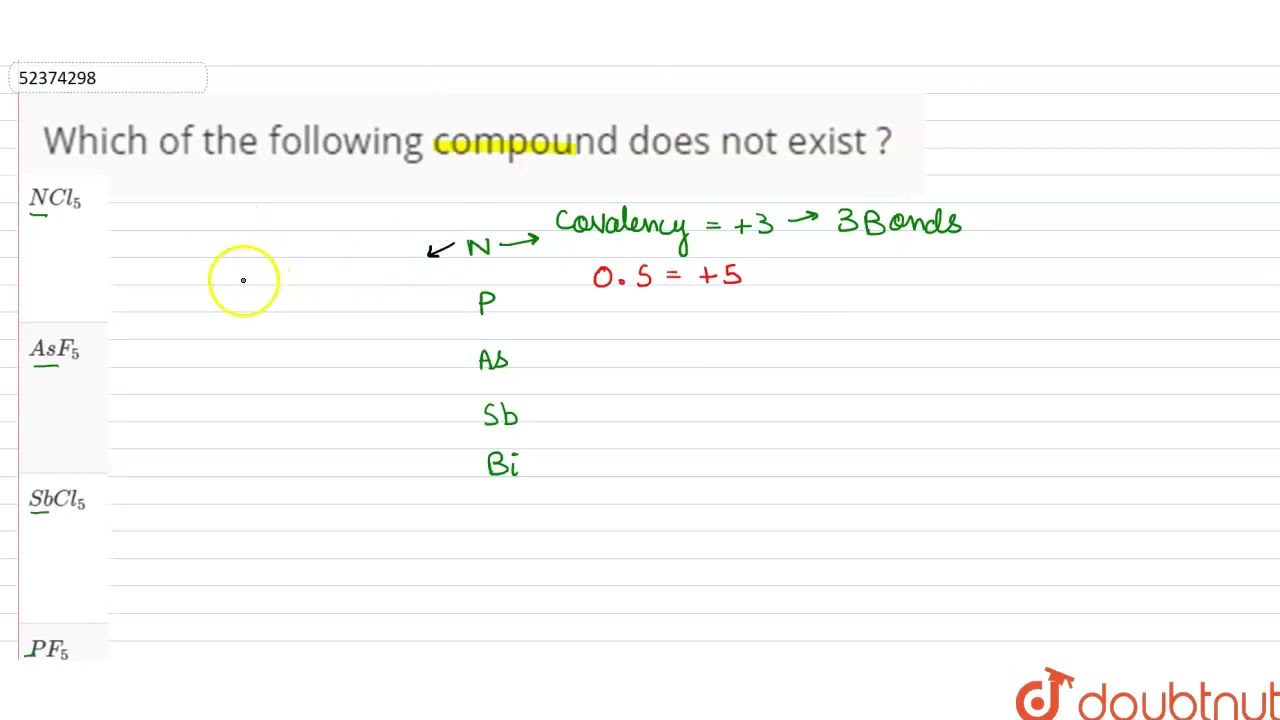 52374298
Which of the following compound does not exist ?
NCl5
N → Covalency = +3 → 3 Bonds
O.S = +5
P
AsF5
As
Sb
Bi
SbCl5
PF5
doubtnut